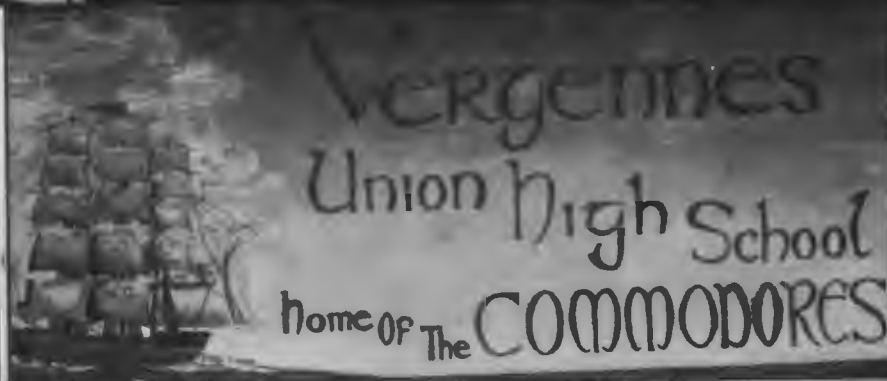 Vergennes
Union High School
home OF The COMMODORES